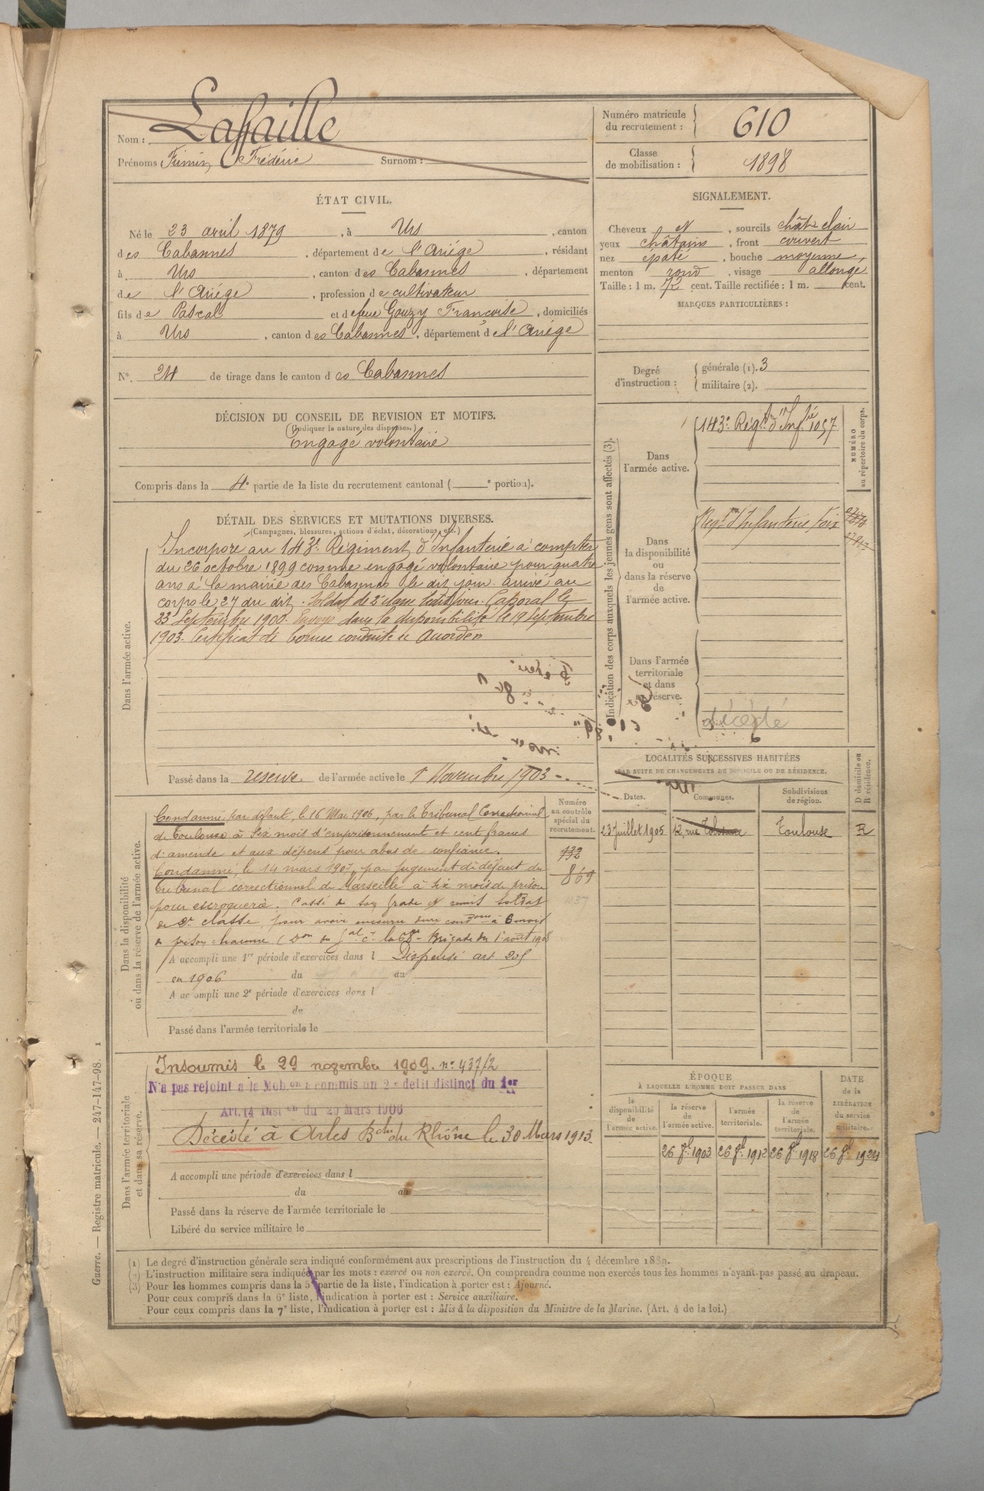 Nom : Lafaille
Prénoms Firmin, Frédéric Surnom :
Numéro matricule du recrutement : 610
Classe de mobilisation : 1898
ÉTAT CIVIL.
Né le 23 avril 1879, à Urs, canton
des Cabannes, département de l'Ariége, résidant
à Urs, canton des Cabannes, département
de l'Ariége, profession de cultivateur
fils de Pascal et de feue Gouzy Françoise, domiciliés
à Urs, canton des Cabannes, département de l'Ariége
N° 24 de tirage dans le canton des Cabannes
DÉCISION DU CONSEIL DE REVISION ET MOTIFS.
(Indiquer la nature des dispenses.)
Engagé volontaire
Compris dans la 4e partie de la liste du recrutement cantonal ( e portion).
SIGNALEMENT.
Cheveux et, sourcils chât. clair
yeux châtains, front couvert
nez épaté, bouche moyenne,
menton rond, visage allongé
Taille : 1 m. 72 cent. Taille rectifiée : 1 m. cent.
MARQUES PARTICULIÈRES :
Degré d'instruction : générale (1). 3
militaire (2).
DÉTAIL DES SERVICES ET MUTATIONS DIVERSES.
(Campagnes, blessures, actions d'éclat, décorations, etc.)
Dans l'armée active.
Incorporé au 143e Régiment d'Infanterie à compter
du 26 octobre 1899 comme engagé volontaire pour quatre
ans à la mairie des Cabannes le dit jour arrivé au
corps le 27 du dit. Soldat de 2e classe le dit jour. Caporal le
23 Septembre 1900. Envoyé dans la disponibilité le 19 Septembre
1903. Certificat de bonne conduite accordé
Passé dans la réserve de l'armée active le 1er Novembre 1903
Indication des corps auxquels les jeunes gens sont affectés (3).
NUMÉRO au répertoire du corps.
Dans l'armée active.
143e Régt d'Infie 1057
Dans la disponibilité ou dans la réserve de l'armée active.
Régt d'Infanterie Foix
Dans l'armée territoriale et dans sa réserve.
décédé
LOCALITÉS SUCCESSIVES HABITÉES
PAR SUITE DE CHANGEMENTS DE DOMICILE OU DE RÉSIDENCE.
Dates. Communes. Subdivisions de région. D domicile ou R résidence.
23 juillet 1905 Toulouse R
Dans la disponibilité ou dans la réserve de l'armée active.
Numéro au contrôle spécial du recrutement.
732
869
Condamné, par défaut, le 16 Mai 1906, par le Tribunal Correctionnel
de Toulouse à six mois d'emprisonnement et cent francs
d'amende et aux dépens pour abus de confiance.
Condamné, le 14 mars 1907, par jugement de défaut du
Tribunal correctionnel de Marseille à six mois de prison
pour escroquerie. Cassé de son grade et remis soldat
de 2e classe, pour avoir encouru une condon à 6 mois
de prison
A accompli une 1re période d'exercices dans l Dispensé art
en 1906 du au
A accompli une 2e période d'exercices dans l
du
Passé dans l'armée territoriale le
Dans l'armée territoriale et dans sa réserve.
Insoumis le 29 novembre 1909. n° 437/2
N'a pas rejoint à la Mob.on a commis un 2e délit distinct du 1er
Art. 14 Inst.on du 20 Mars 1906
Décédé à Arles Bches du Rhône le 30 Mars 1913.
A accompli une période d'exercices dans l
du au
Passé dans la réserve de l'armée territoriale le
Libéré du service militaire le
ÉPOQUE
À LAQUELLE L'HOMME DOIT PASSER DANS
la disponibilité de l'armée active. la réserve de l'armée active. l'armée territoriale. la réserve de l'armée territoriale.
DATE de la LIBÉRATION du service militaire.
26 8bre 1903 26 8bre 1912 26 8bre 1918 26 8bre 1924
(1) Le degré d'instruction générale sera indiqué conformément aux prescriptions de l'instruction du 4 décembre 1889.
(2) L'instruction militaire sera indiquée par les mots : exercé ou non exercé. On comprendra comme non exercés tous les hommes n'ayant pas passé au drapeau.
(3) Pour les hommes compris dans la 5e partie de la liste, l'indication à porter est : Ajourné.
Pour ceux compris dans la 6e liste, l'indication à porter est : Service auxiliaire.
Pour ceux compris dans la 7e liste, l'indication à porter est : Mis à la disposition du Ministre de la Marine. (Art. 4 de la loi.)
Guerre. — Registre matricule. — 247-147-98. 1